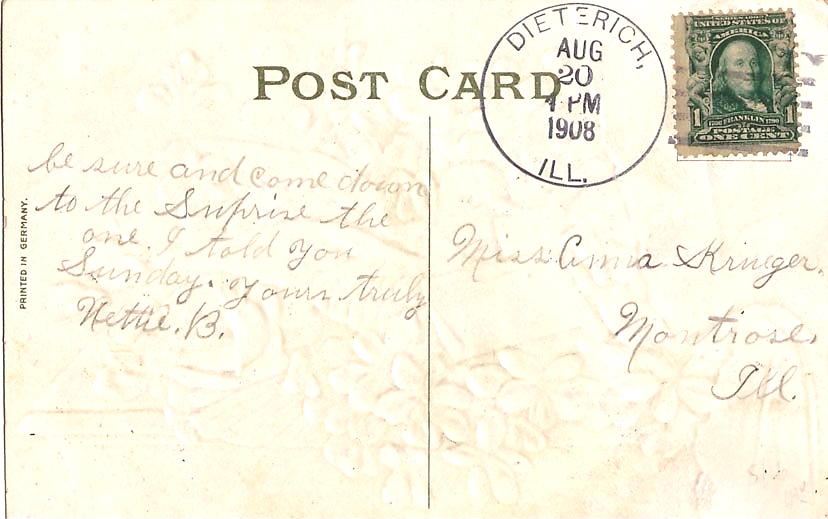 POST CARD
DIETERICH,
AUG
20
4 PM
1908
ILL.
SERIES 1902
UNITED STATES OF
AMERICA
1 1
1706 FRANKLIN 1790
POSTAGE
ONE CENT
PRINTED IN GERMANY.
be sure and come down
to the Suprise the
one. I told you
Sunday. yours truly
Nettie. B.
Miss Anna Krueger.
Montrose,
Ill.